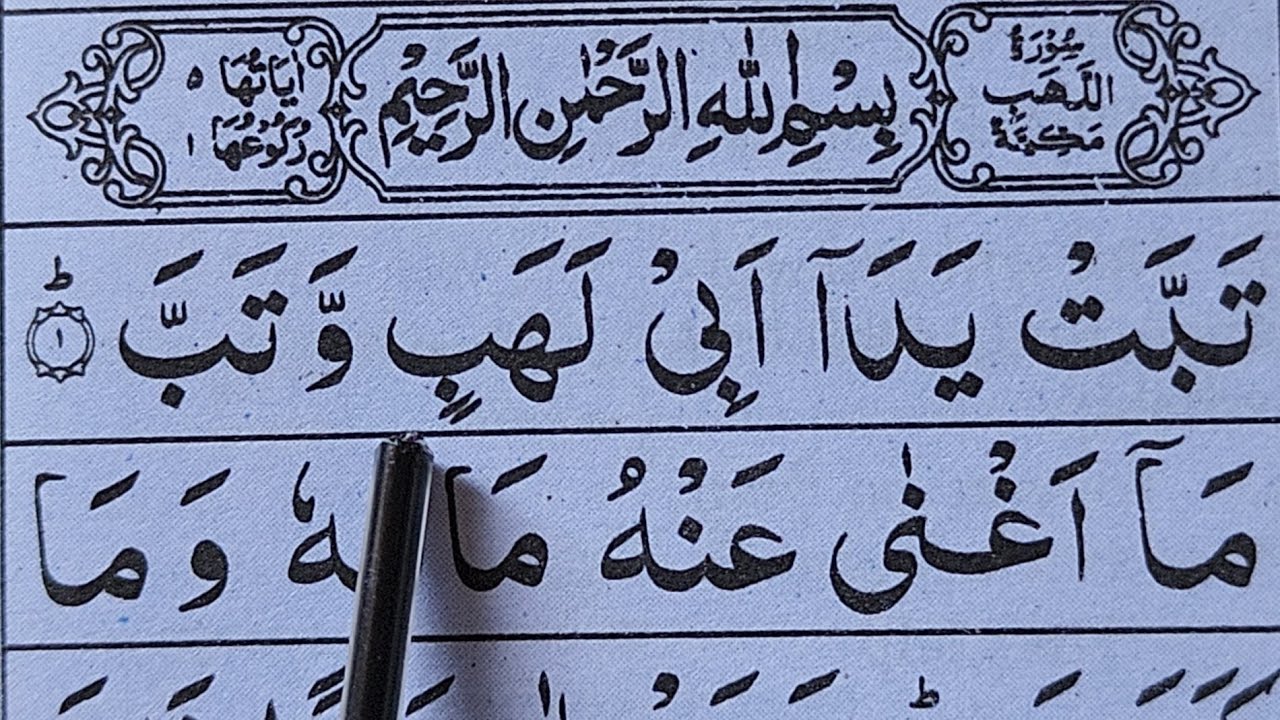 سُوْرَةُ
اللَّهَبِ
مَكِّيَّةٌ
بِسْمِ اللهِ الرَّحْمٰنِ الرَّحِيْمِ
اٰيَاتُهَا ٥
رُكُوْعُهَا ١
تَبَّتْ يَدَآ اَبِيْ لَهَبٍ وَّ تَبَّ ؕ ١
مَآ اَغْنٰى عَنْهُ مَالُهٗ وَ مَا